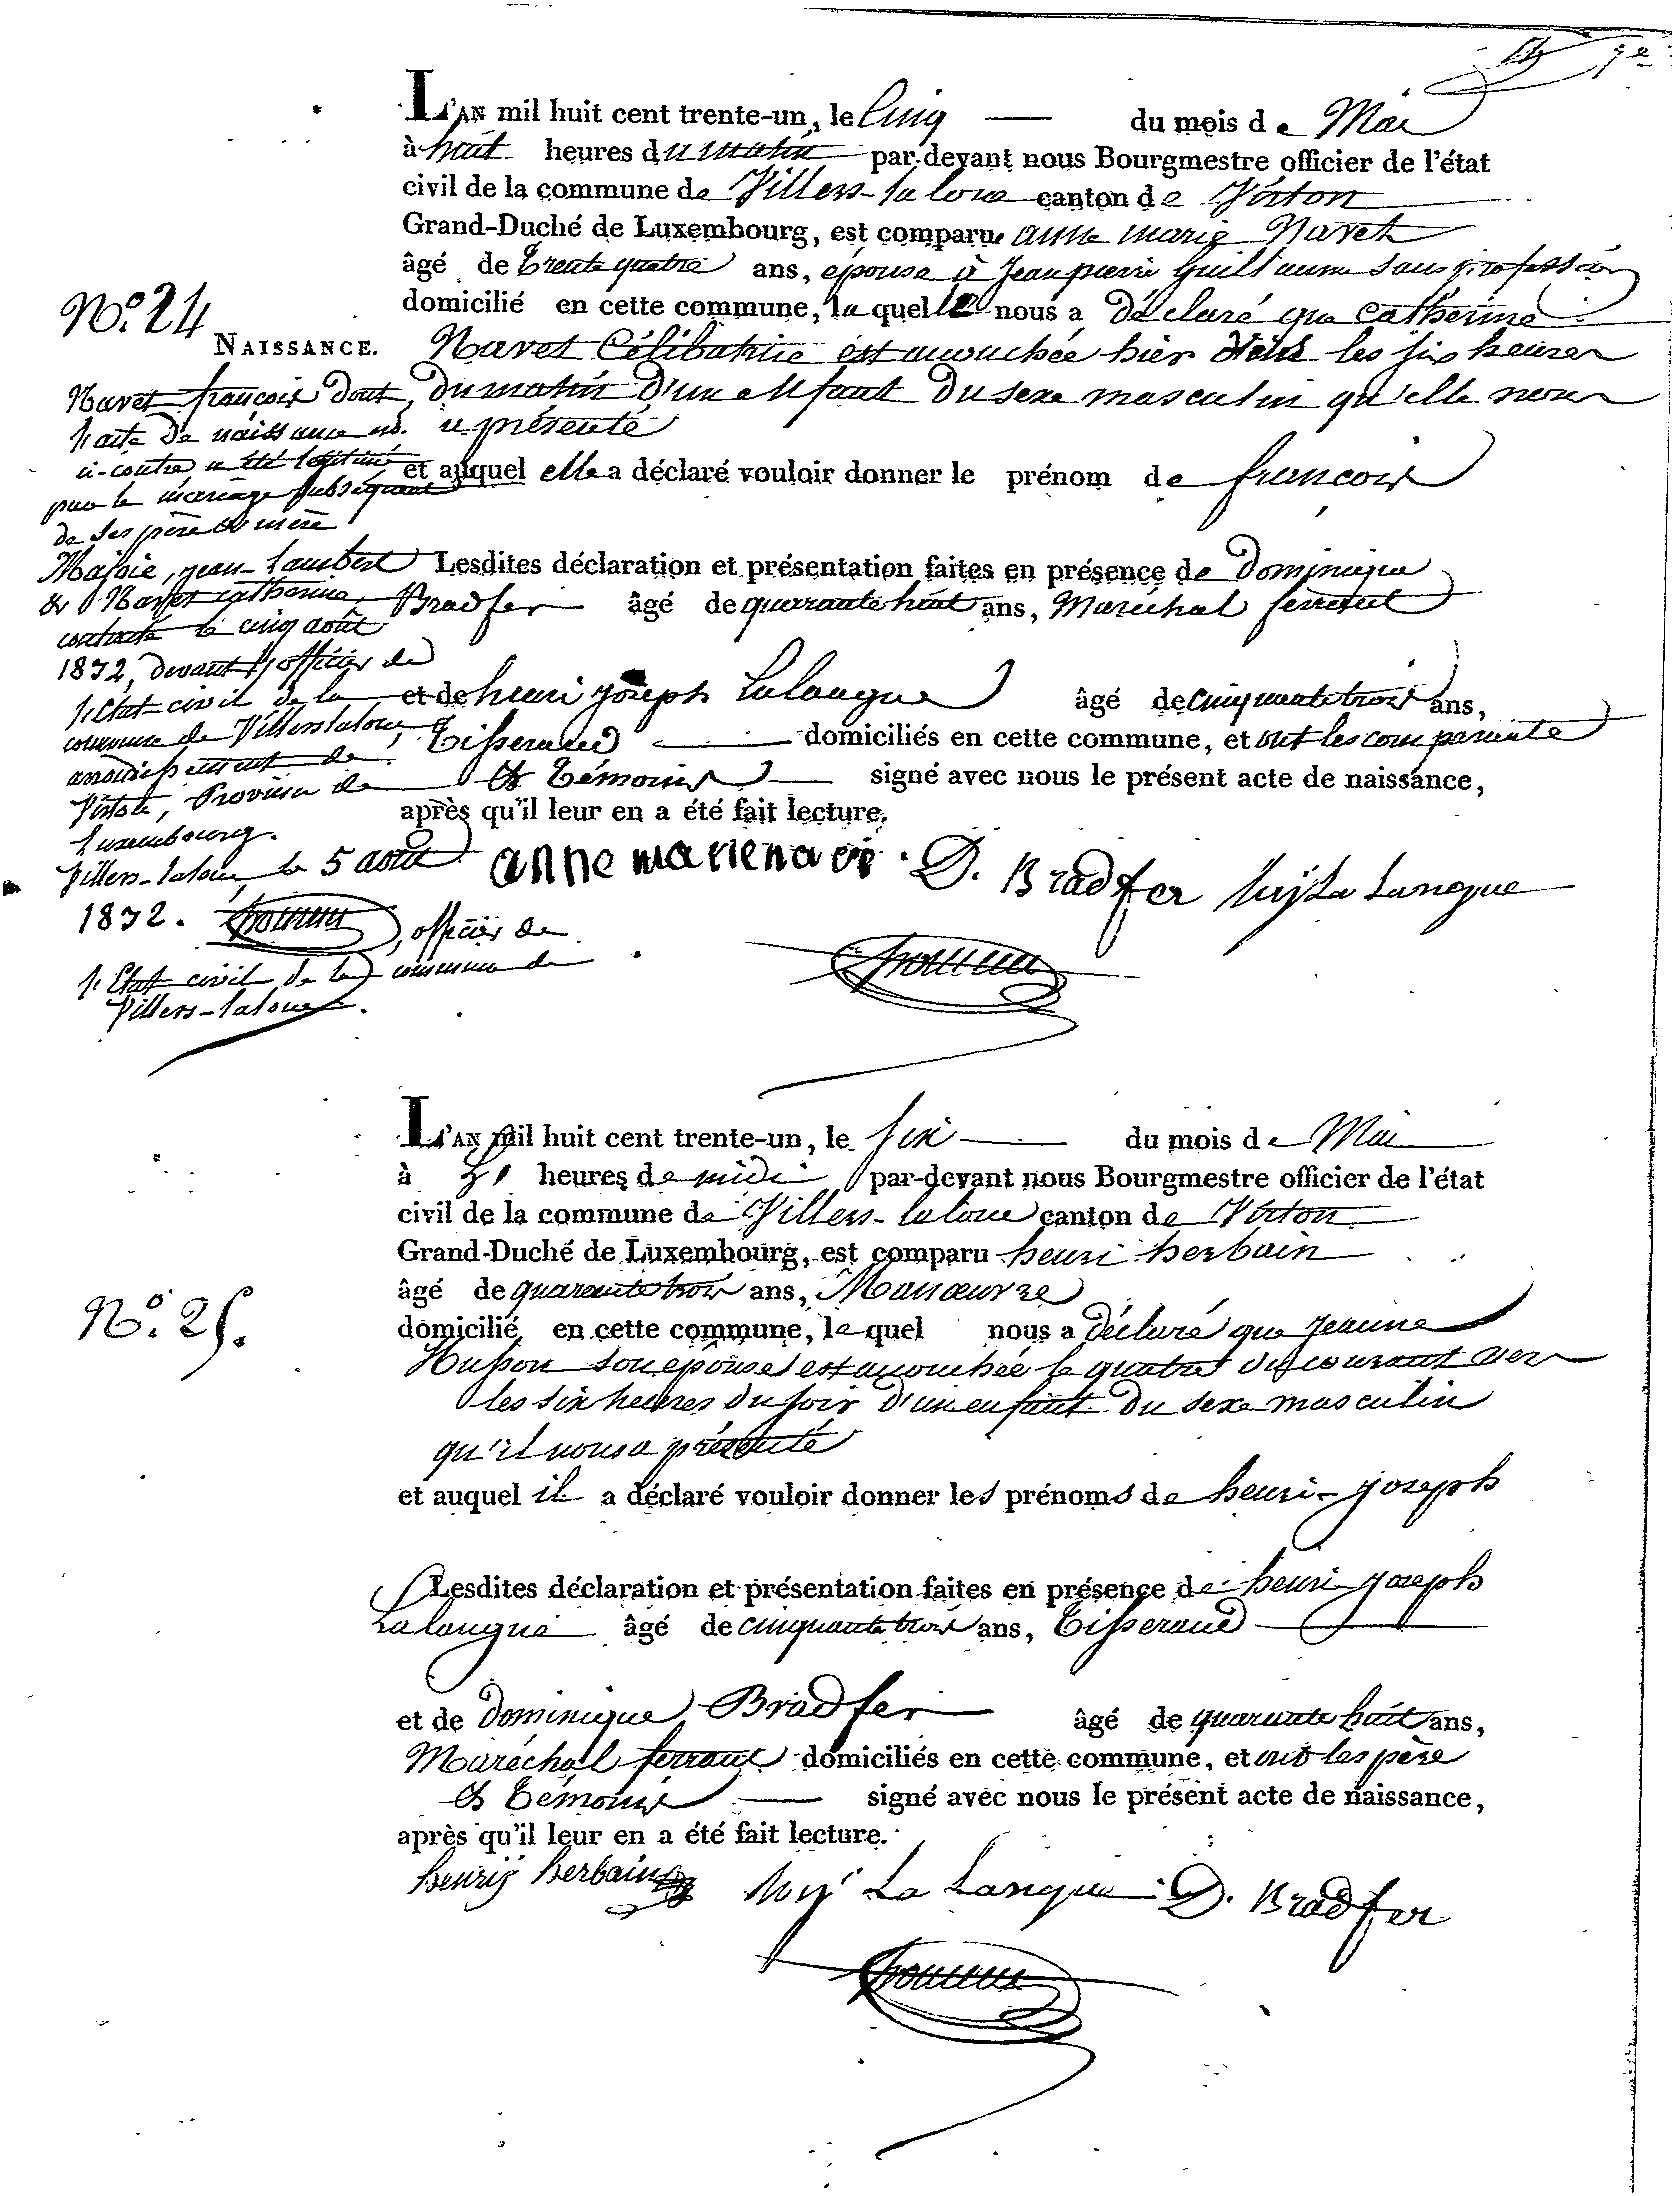 L'AN mil huit cent trente-un, le Cinq du mois de Mai
à huit heures du matin par-devant nous Bourgmestre officier de l'état
civil de la commune de Villers-la loue canton de Virton
Grand-Duché de Luxembourg, est comparue anne marie Navet
âgé de trente quatre ans, épouse à Jean pierre Guillaume sans profession
domicilié en cette commune, la quelle nous a déclaré que Catherine
Navet Célibatrice est accouchée hier vers les six heures
du matin d'un enfant du sexe masculin qu'elle nous
a présenté
et auquel elle a déclaré vouloir donner le prénom de francois
Lesdites déclaration et présentation faites en présence de Dominique
Bradfer âgé de quarante huit ans, Maréchal ferrant
et de henri joseph Lalangue âgé de cinquante trois ans,
Tisserand domiciliés en cette commune, et ont les comparante
et témoins signé avec nous le présent acte de naissance,
après qu'il leur en a été fait lecture.
anne marie navet D. Bradfer hrÿ La Langue
No. 24
NAISSANCE.
Navet françois dont
l'acte de naissance
ci-contre a été légitimé
par le mariage subséquent
de ses père et mère
Majoie, jean-lambert
et Navet catherine,
contracté le cinq août
1832, devant l'officier de
l'état civil de la
commune de Villerslaloue,
arrondissement de
Virton, Province de
Luxembourg.
Villers-laloue le 5 août
1832. officier de
l'Etat civil de la commune de
Villers-laloue.
L'AN mil huit cent trente-un, le six du mois de Mai
à heures de midi par-devant nous Bourgmestre officier de l'état
civil de la commune de Villers-laloue canton de Virton
Grand-Duché de Luxembourg, est comparu henri herbain
âgé de quarante trois ans, Manœuvre
domicilié en cette commune, lequel nous a déclaré que Jeanne
Husson son épouse est accouchée le quatre du courant vers
les six heures du soir d'un enfant du sexe masculin
qu'il nous a présenté
et auquel il a déclaré vouloir donner les prénoms de henri-joseph
Lesdites déclaration et présentation faites en présence de henri joseph
Lalangue âgé de cinquante trois ans, Tisserand
et de Dominique Bradfer âgé de quarante huit ans,
Maréchal ferrant domiciliés en cette commune, et ont les père
et témoins signé avec nous le présent acte de naissance,
après qu'il leur en a été fait lecture.
henrÿ herbain hrÿ La Langue D. Bradfer
No. 25.